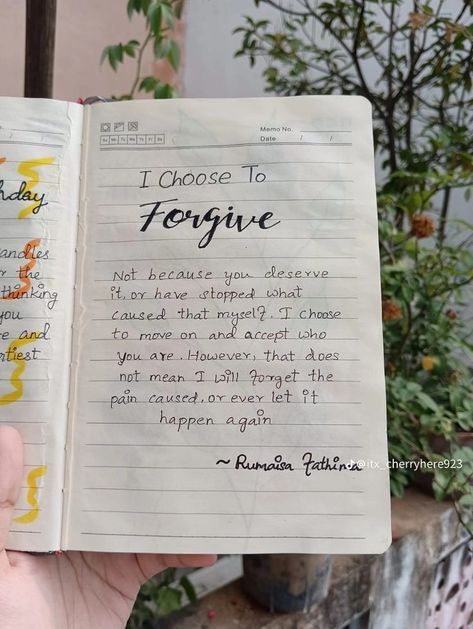 hday
andles
r the
thinking
you
e and
rtiest
Memo No.
Su Mo Tu We Th Fr Sa
Date / /
I Choose To
Forgive
Not because you deserve
it, or have stopped what
caused that myself. I choose
to move on and accept who
you are. However, that does
not mean I will forget the
pain caused, or ever let it
happen again
~ Rumaisa Fathima
@itx_cherryhere923